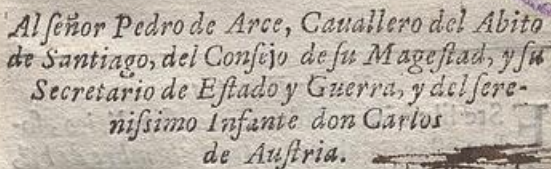 Al ſeñor Pedro de Arce, Cauallero del Abito
de Santiago, del Conſejo de ſu Mageſtad, y ſu
Secretario de Eſtado y Guerra, y del ſere-
niſsimo Infante don Carlos
de Auſtria.